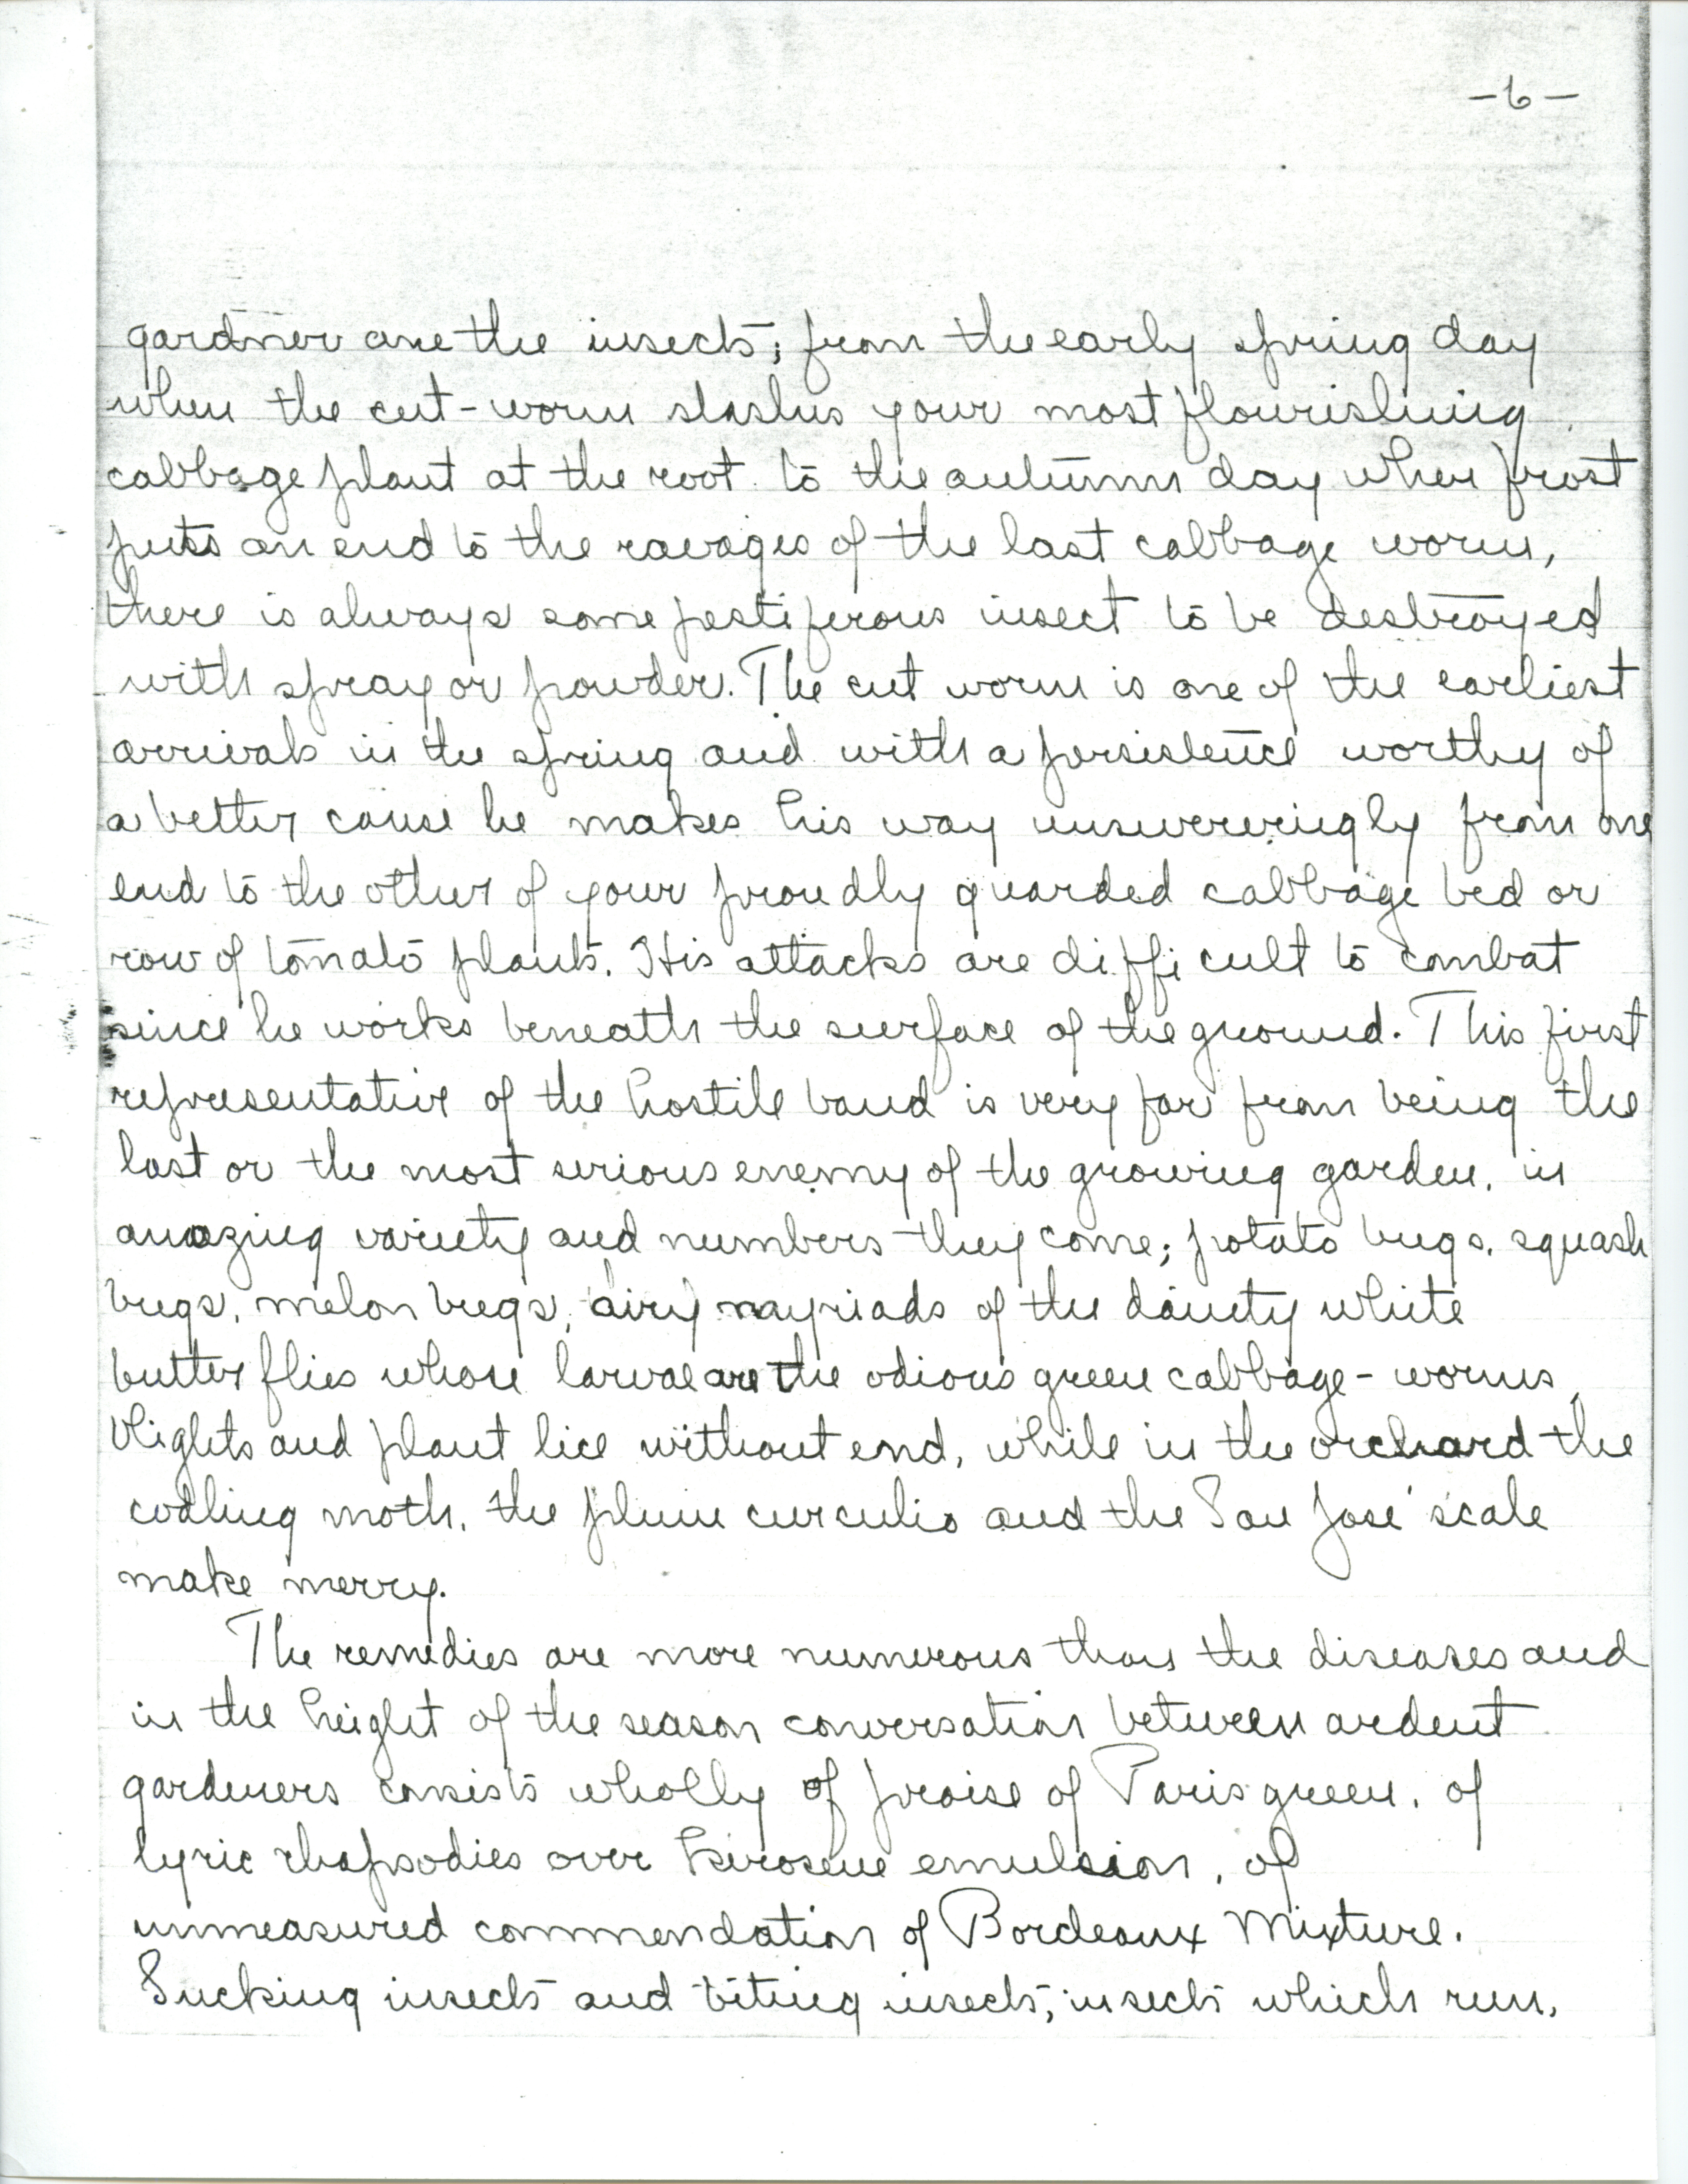 -6-
gardner are the insects; from the early spring day
when the cut-worm slashes your most flourishing
cabbage plant at the root to the autumn day when frost
puts an end to the ravages of the last cabbage worm,
there is always some pestiferous insect to be destroyed
with spray or powder. The cut worm is one of the earliest
arrivals in the spring and with a persistence worthy of
a better cause he makes his way unswerveringly from one
end to the other of your proudly guarded cabbage bed or
row of tomato plants. His attacks are difficult to combat
since he works beneath the surface of the ground. This first
representative of the hostile band is very far from being the
last or the most serious enemy of the growing garden, in
amazing variety and numbers they come; potato bugs, squash
bugs, melon bugs, airy mayriads of the dainty white
butterflies whose larvae are the odious green cabbage-worms,
blights and plant lice without end, while in the orchard the
codling moth, the plum curculio and the San José scale
make merry.
The remedies are more numerous than the diseases and
in the height of the season conversation between ardent
gardeners consists wholly of praise of Paris green, of
lyric rhapsodies over kerosene emulsion, of
unmeasured commendation of Bordeaux Mixture.
Sucking insects and biting insects, insects which run,